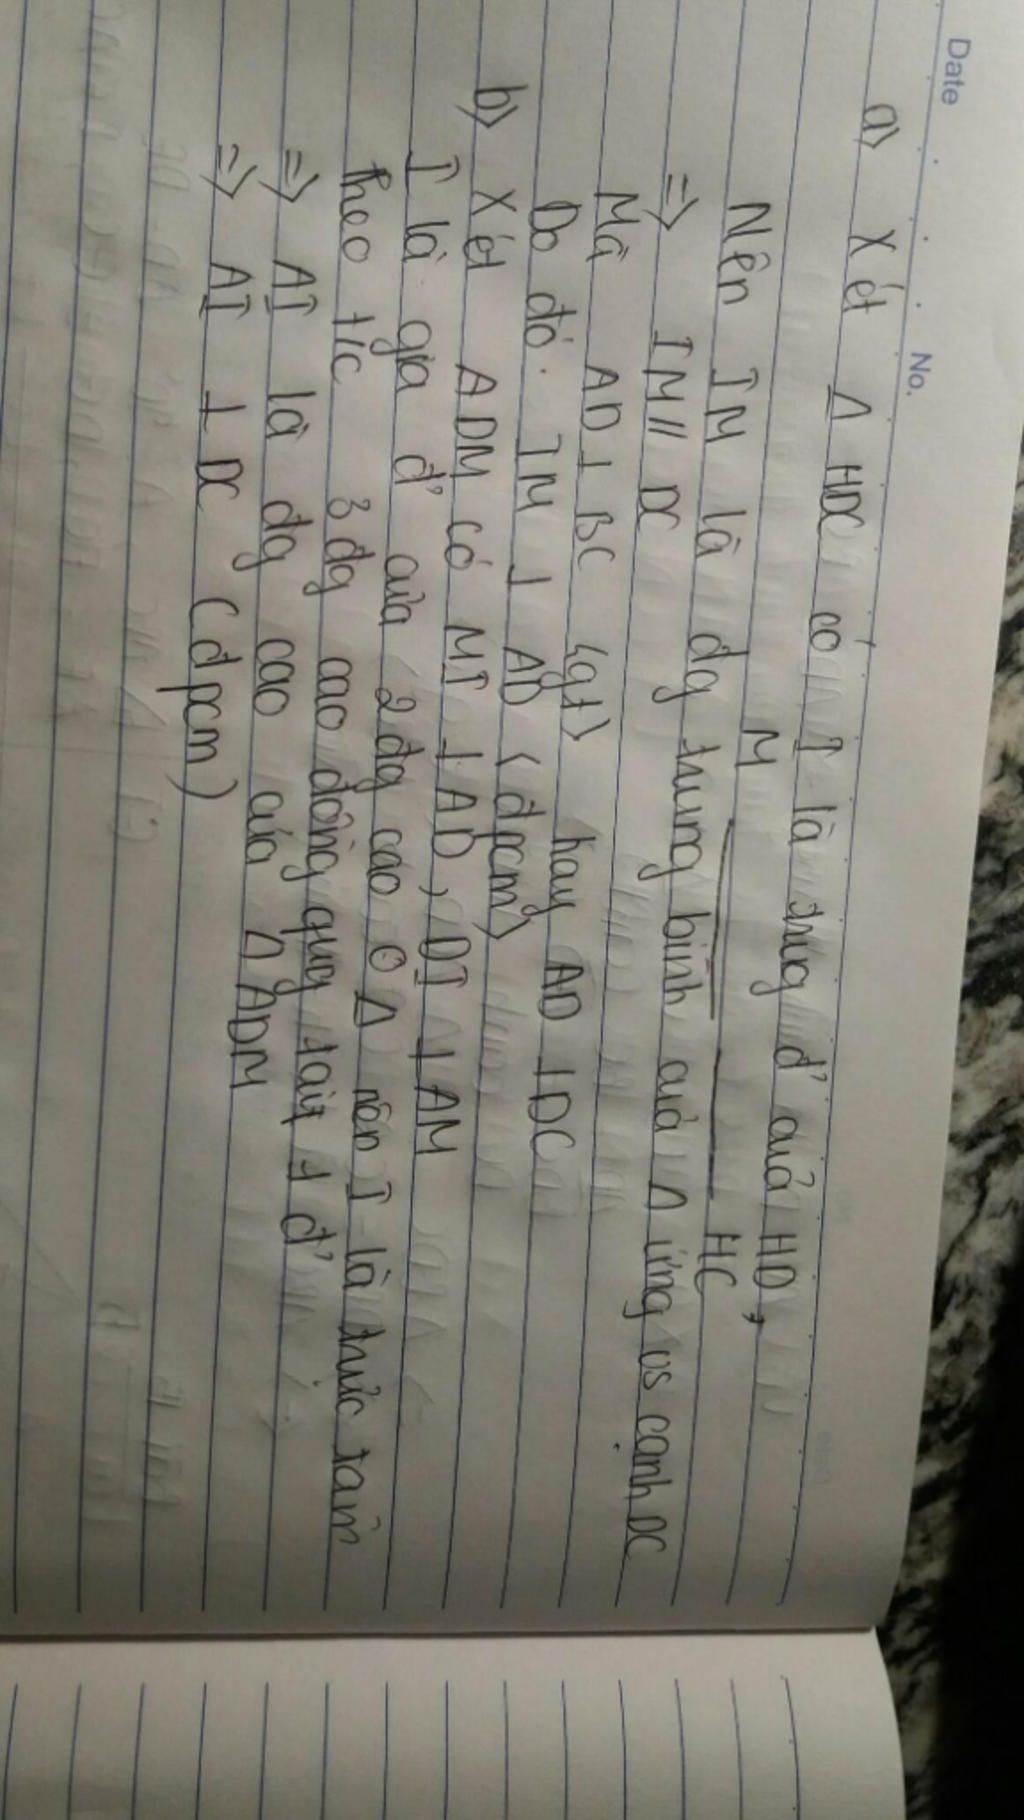 Date
No.
a) Xét Δ HDC có I là trug đ' của HD,
M ——— HC
Nên IM là đg trung bình của Δ ứng vs cạnh DC
=> IM // DC
Mà AD ⊥ BC (gt) hay AD ⊥ DC
Do đó. IM ⊥ AD (đpcm)
b) Xét ADM có MI ⊥ AD, DI ⊥ AM
I là gia đ' của 2 đg cao Δ nên I là trực tâm
theo t/c 3 đg cao đồng quy tại 1 đ'
=> AI là đg cao của Δ ADM
=> AI ⊥ DC (đpcm)